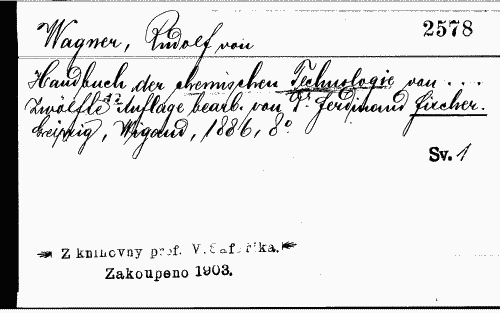 Wagner, Rudolf von
2578
Handbuch der chemischen Technologie von ...
Zwölfte Auflage bearb. von Dr. Ferdinand Fischer.
Leipzig, Wigand, 1886, 8°
Sv. 1
Z knihovny prof. V. Šafaříka.
Zakoupeno 1903.